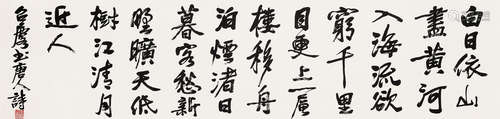 白日依山
盡黃河
入海流欲
窮千里
目更上一層
樓移舟
泊煙渚日
暮客愁新
野曠天低
樹江清月
近人
台靜書唐人詩